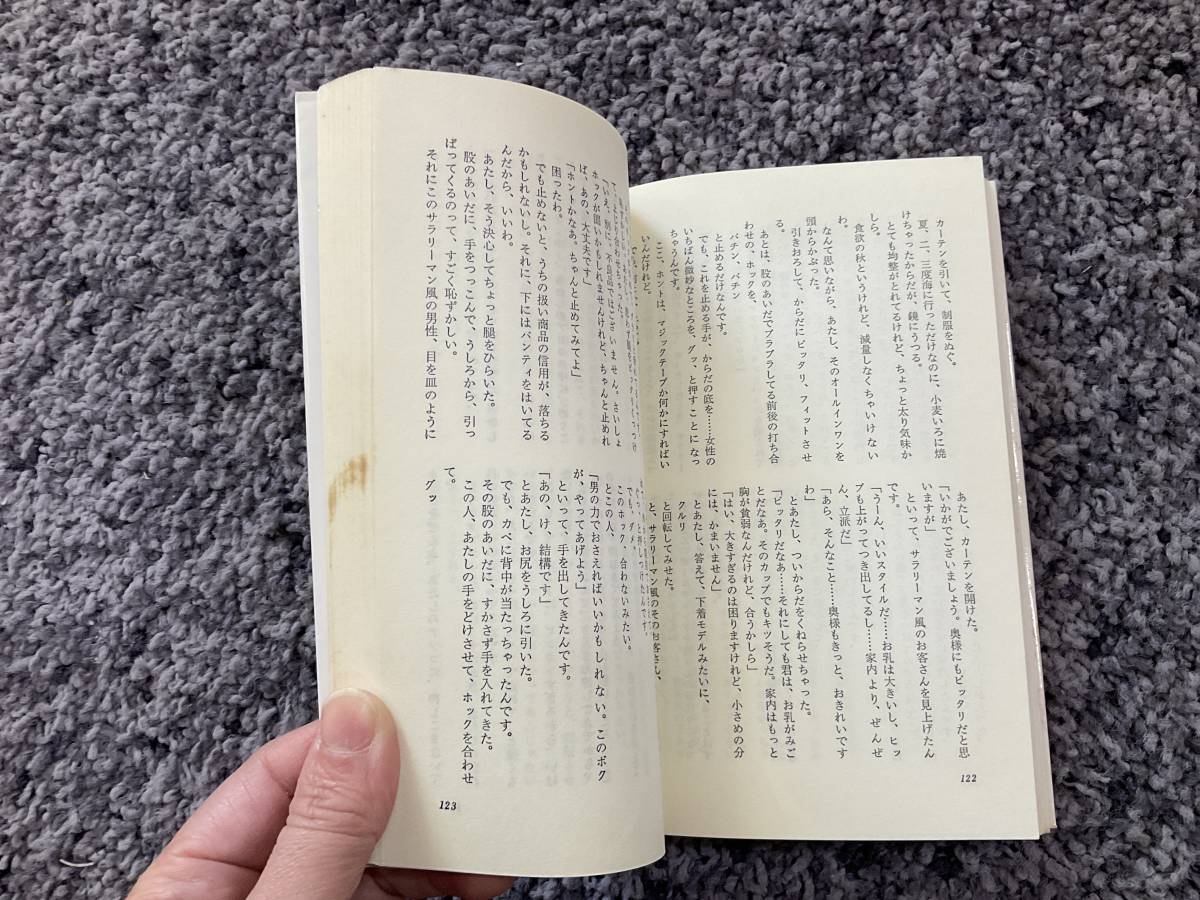 カーテンを引いて、制服をぬぐ。
夏、二、三度海に行っただけなのに、小麦いろに焼
けちゃったからだが、鏡にうつる。
とても均整がとれてるけれど、ちょっと太り気味か
しら。
食欲の秋というけれど、減量しなくちゃいけない
わ。
なんて思いながら、あたし、そのオールインワンを
頭からかぶった。
引きおろして、からだにピッタリ、フィットさせ
る。
あとは、股のあいだでブラブラしてる前後の打ち合
わせの、ホックを、
パチン、パチン
と止めるだけなんです。
でも、これを止める手が、からだの底を……女性の
いちばん微妙なところを、グッ、と押すことになっ
ちゃうんです。
ここ、ホントは、マジックテープか何かにすればい
いんだけれど。
あたし、カーテンを開けた。
「いかがでございましょう。奥様にもピッタリだと思
いますが」
といって、サラリーマン風のお客さんを見上げたん
です。
「うーん、いいスタイルだ……お乳は大きいし、ヒッ
プも上がってつき出してるし……家内より、ぜんぜ
ん、立派だ」
「あら、そんなこと……奥様もきっと、おきれいです
わ」
とあたし、ついからだをくねらせちゃった。
「ピッタリだなあ……それにしても君は、お乳がみご
とだなあ。そのカップでもキツそうだ。家内はもっと
胸が貧弱なんだけれど、合うかしら」
「はい、大きすぎるのは困りますけれど、小さめの分
には、かまいません」
とあたし、答えて、下着モデルみたいに、
クルリ
と回転してみせた。
と、サラリーマン風のそのお客さん、
122
「いえ、別に、不良品ではございません。さいしょ
ホックが固いかもしれませんけれど、ちゃんと止めれ
ば、あの、大丈夫です」
「ホントかなあ。ちゃんと止めてみてよ」
困ったわ。
でも止めないと、うちの扱い商品の信用が、落ちる
かもしれないし。それに、下にはパンティをはいてる
んだから、いいわ。
あたし、そう決心してちょっと腿をひらいた。
股のあいだに、手をつっこんで、うしろから、引っ
ぱってくるのって、すごく恥ずかしい。
それにこのサラリーマン風の男性、目を皿のように
でも、ダメ。
このホック、合わないみたい。
とこの人、
「男の力でおさえればいいかもしれない。このボク
が、やってあげよう」
といって、手を出してきたんです。
「あの、け、結構です」
とあたし、お尻をうしろに引いた。
でも、カベに背中が当たっちゃったんです。
その股のあいだに、すかさず手を入れてきた。
この人、あたしの手をどけさせて、ホックを合わせ
て。
グッ
123